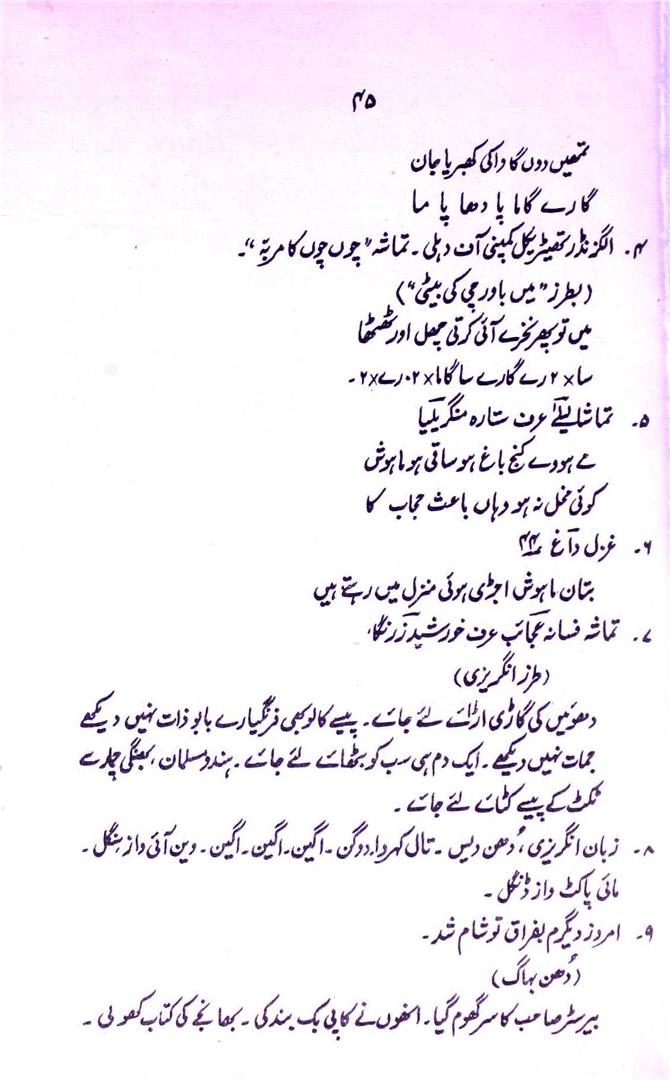 ۴۵
تمھیں دوں گا واکی کھبریا جان
گارے گاما پا دھا پا ما
۴۔ الگزنڈر تھیٹریکل کمپنی آف دہلی۔ تماشہ "چوں چوں کا مربّہ"۔
(بطرز "میں باورچی کی بیٹی")
میں تو پھر نخرے آئی کرتی چھل اور ٹھٹھا
سا×۲ رے گارے سا گاما×۲۰رے×۲۔
۵۔ تماشا لیلےٰ عرف ستارہ منگریلیا
مے ہووے کنج باغ ہو ساقی ہو ماہوش
کوئی مخل نہ ہو وہاں باعث حجاب کا
۶۔ غزل داغ ۴۴
بتان ماہوش اجڑی ہوئی منزل میں رہتے ہیں
۷۔ تماشہ فسانہ عجائب عرف خورشید زرنگار
(طرز انگریزی)
دھوئیں کی گاڑی اڑائے لئے جائے۔ پیسے کا لوبھی فرنگیارے بابو ذات نہیں دیکھے
جمات نہیں دیکھے۔ ایک دم ہی سب کو بٹھائے لئے جائے۔ ہندو مسلمان، بھنگی چمارے
ٹکٹ کے پیسے کٹائے لئے جائے۔
۸۔ زبان انگریزی، دُھن دیس۔ تال کہروا۔ دوگن۔ اگین۔ اگین۔ اگین۔ وین آئی واز سنگل۔
مائی پاکٹ واز ڈنگل۔
۹۔ امروز دیگرم بفراق تو شام شد۔
(دُھن بہاگ)
بیرسٹر صاحب کا سر گھوم گیا۔ انھوں نے کاپی بک بند کی۔ بھانجے کی کتاب کھولی۔